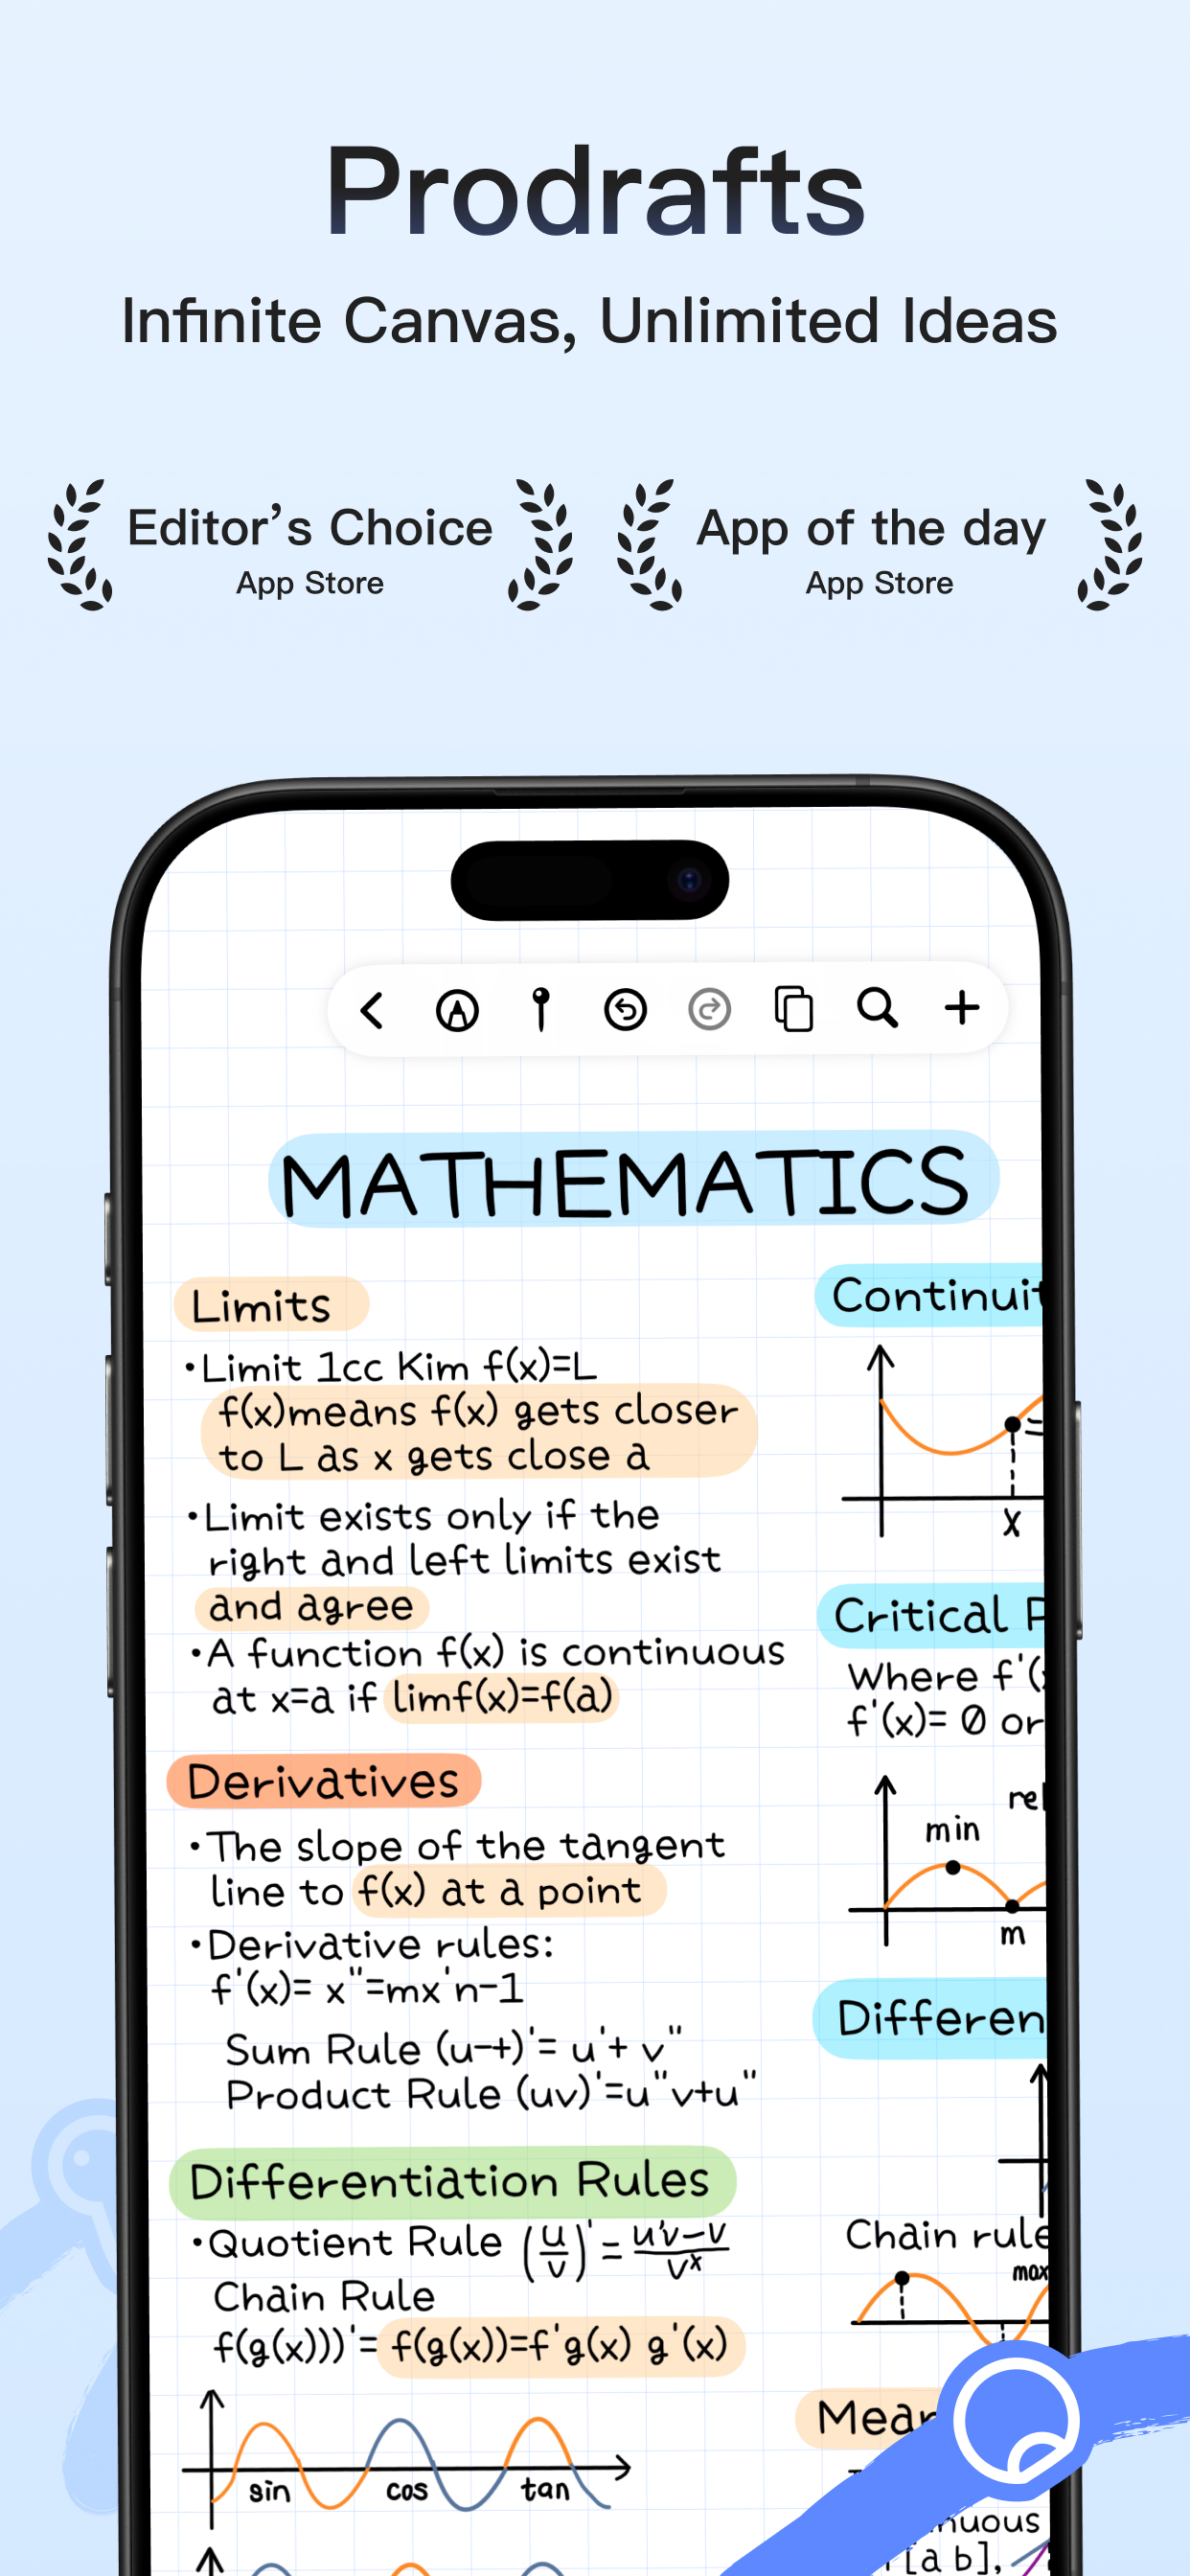 Prodrafts
Infinite Canvas, Unlimited Ideas
Editor's Choice
App Store
App of the day
App Store
MATHEMATICS
Limits
•Limit 1cc Kim f(x)=L
f(x)means f(x) gets closer
to L as x gets close a
•Limit exists only if the
right and left limits exist
and agree
•A function f(x) is continuous
at x=a if limf(x)=f(a)
Derivatives
•The slope of the tangent
line to f(x) at a point
•Derivative rules:
f'(x)= x"=mx'n-1
Sum Rule (u-+)'= u'+ v"
Product Rule (uv)'=u"v+u"
Differentiation Rules
•Quotient Rule (u/v)' = u'v-v/vˣ
Chain Rule
f(g(x)))'= f(g(x))=f'g(x) g'(x)
sin cos tan
Continuit
x
Critical P
Where f'(x
f'(x)= 0 or
rel
min
m
Differen
Chain rule
max
Mear
nuous
[a b],